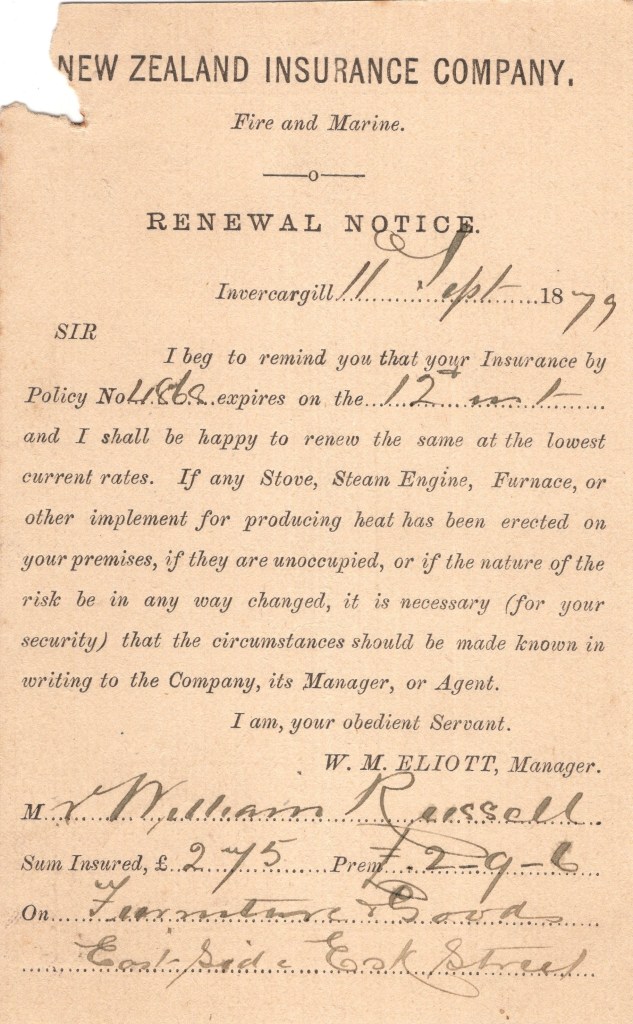 NEW ZEALAND INSURANCE COMPANY.
Fire and Marine.
RENEWAL NOTICE.
Invercargill 11 Sept 1879
SIR
I beg to remind you that your Insurance by
Policy No. expires on the 12th inst
and I shall be happy to renew the same at the lowest
current rates. If any Stove, Steam Engine, Furnace, or
other implement for producing heat has been erected on
your premises, if they are unoccupied, or if the nature of the
risk be in any way changed, it is necessary (for your
security) that the circumstances should be made known in
writing to the Company, its Manager, or Agent.
I am, your obedient Servant.
W. M. ELIOTT, Manager.
Mr William Russell.
Sum Insured, £ 275 Prem £2-9-6
On Furniture & Goods
East Side Esk Street